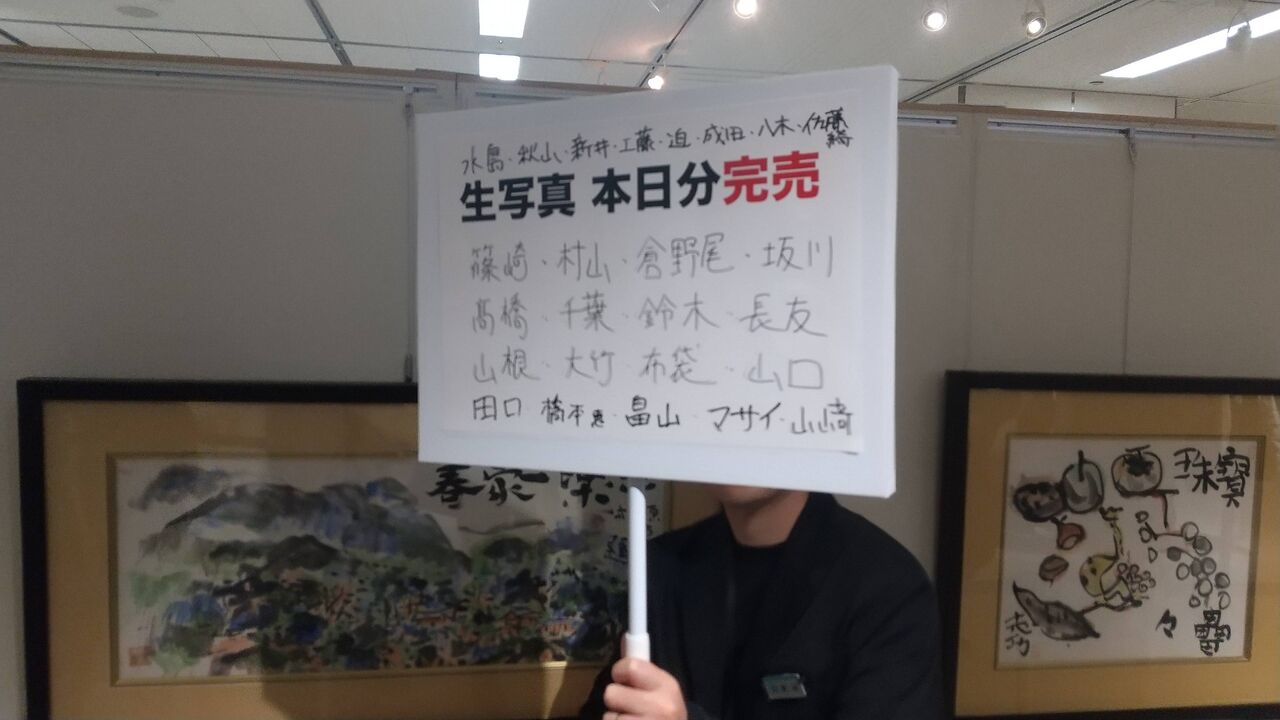 水島・秋山・新井・工藤・迫・成田・八木・佐藤綺
生写真 本日分完売
篠崎・村山・倉野尾・坂川
髙橋・千葉・鈴木・長友
山根・大竹・布袋・山口
田口 橋本恵・畠山・マサイ・山﨑
春
珠寶